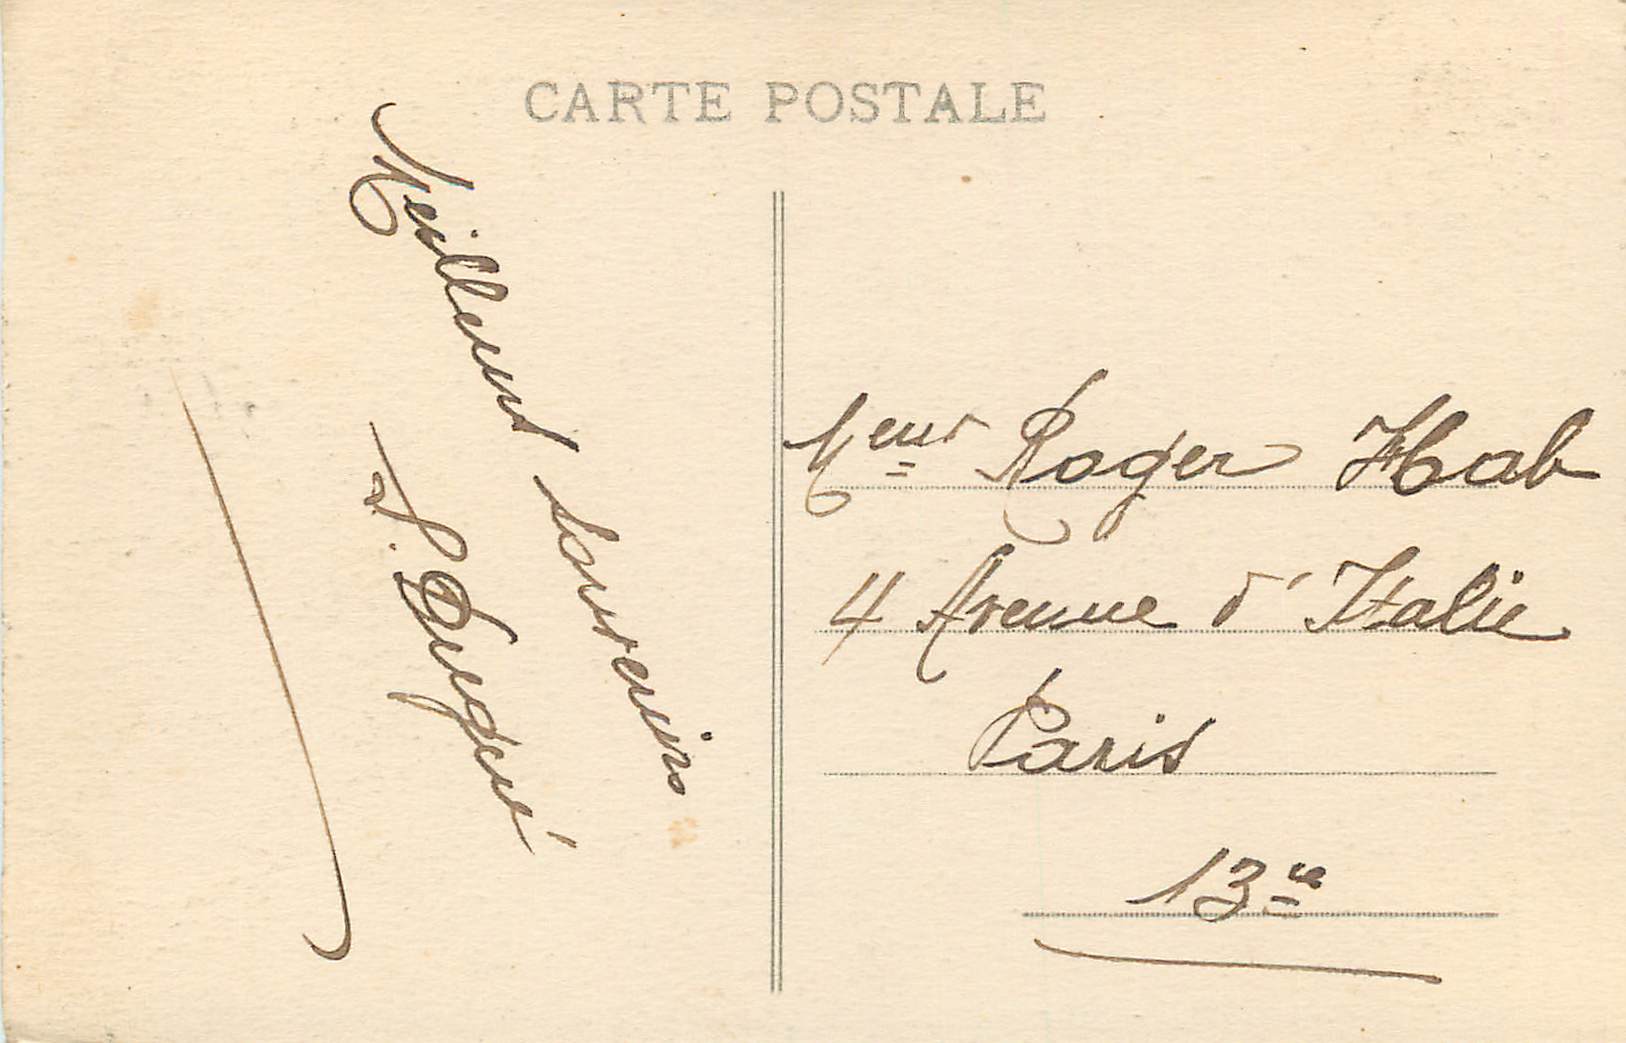 CARTE POSTALE
Meilleurs souvenirs
Meur Roger Hab
4 Avenue d'Italie
Paris
13e